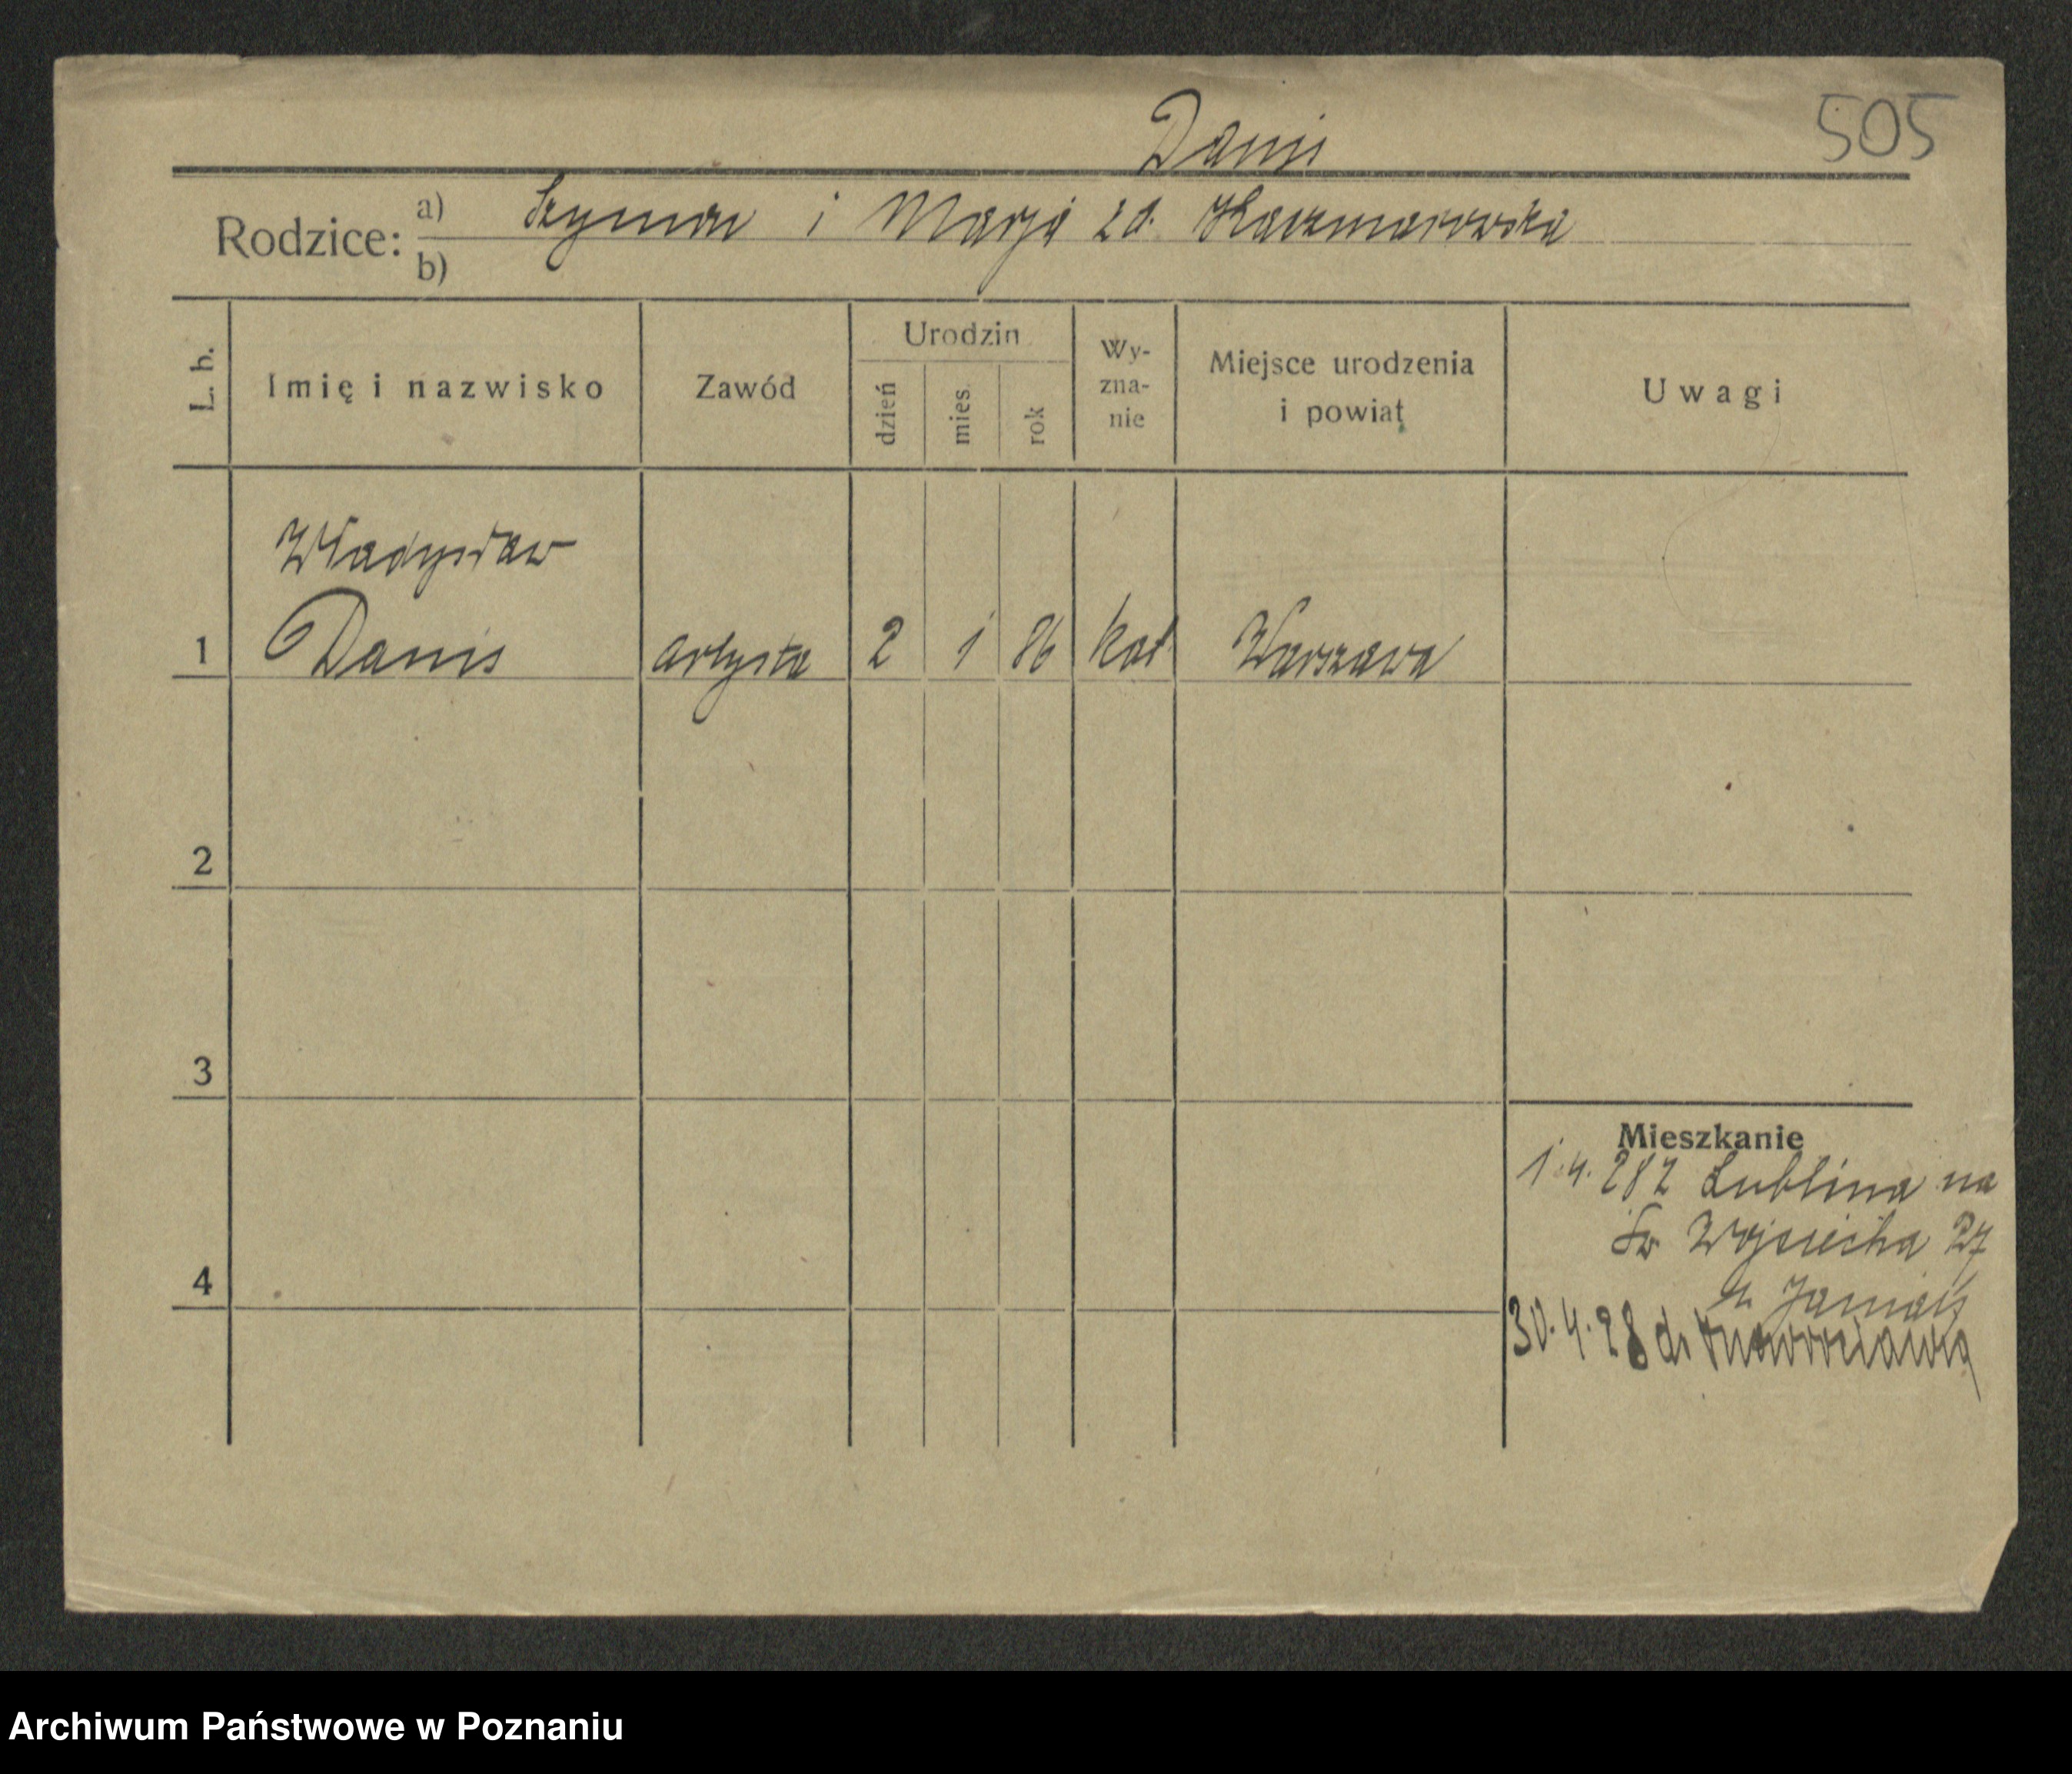 505
Danis
Rodzice: a) Szymon i Marja zd. Kaczmarowska
b)
L. b.
Imię i nazwisko
Zawód
Urodzin
dzień
mies.
rok
Wy-
zna-
nie
Miejsce urodzenia
i powiat
Uwagi
Władysław
1 Danis artysta 2 1 86 kat Warszawa
2
3
4
Mieszkanie
1.4.28 z Lublina na
Św Wojciecha 27
30.4.28 do Inowrocławia
Archiwum Państwowe w Poznaniu